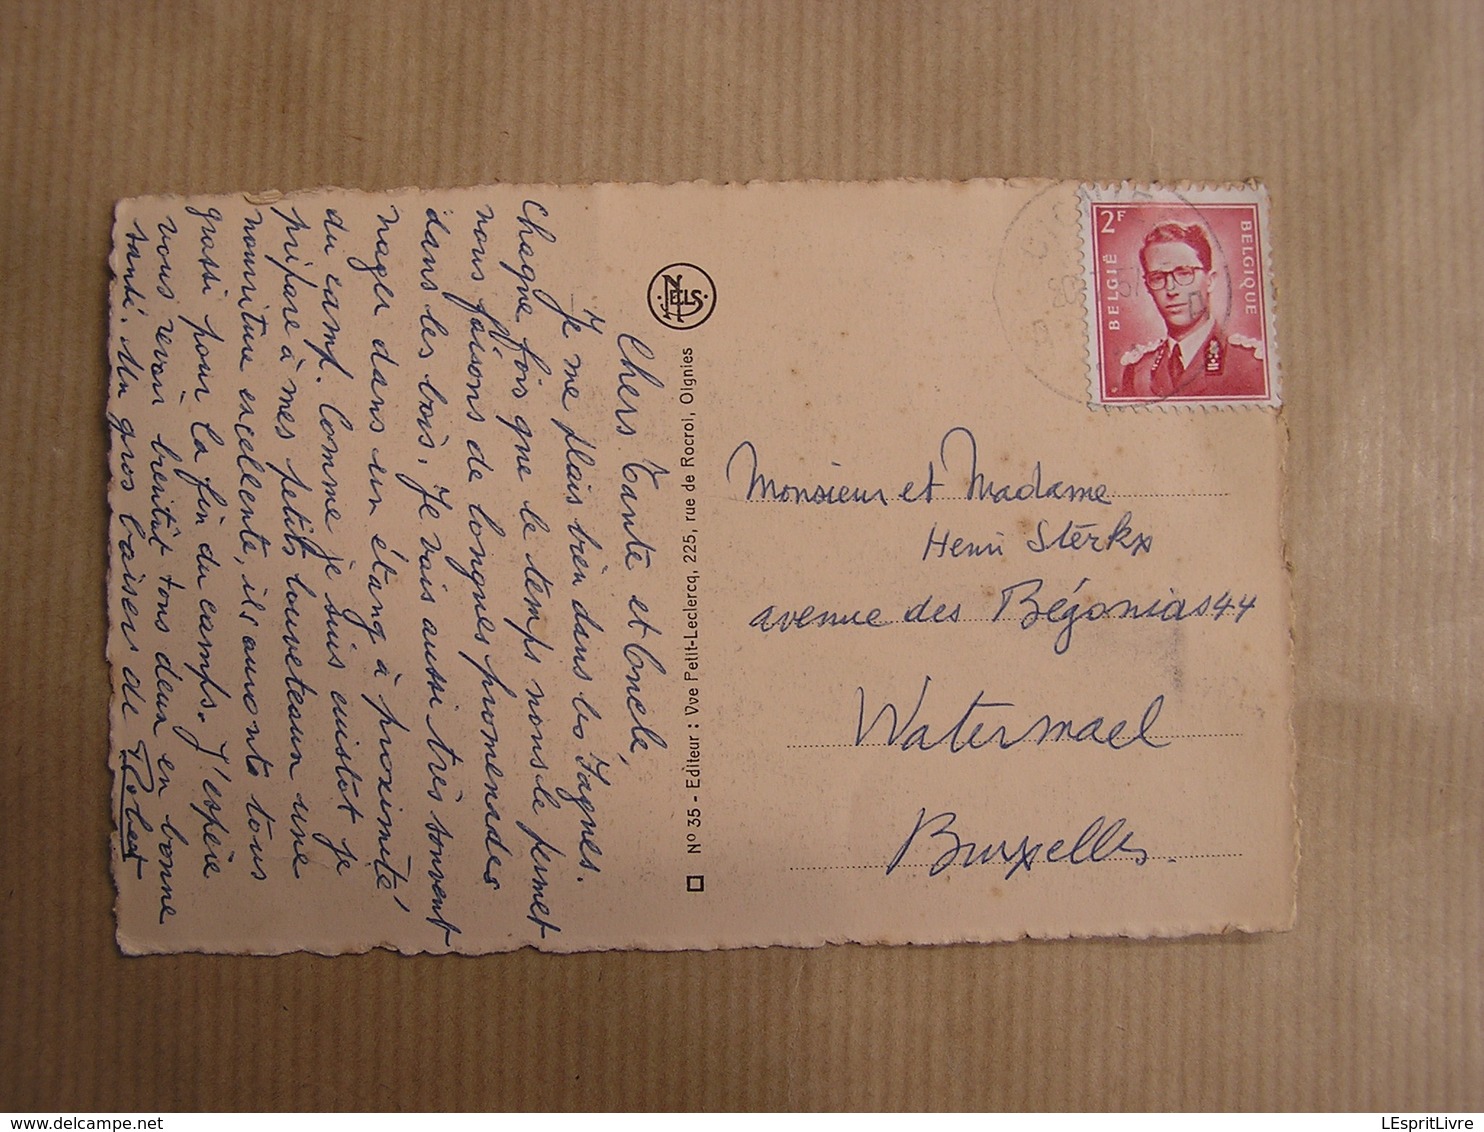 Chers Tante et Oncle,
Je me plais bien dans les Fagnes.
Chaque fois que le temps nous le permet
nous faisons de longues promenades
dans les bois. Je vais aussi très souvent
nager dans un étang à proximité
du camp. Comme je suis cuistot je
prépare à mes petits louveteaux une
nourriture excellente, ils auront tous
grossi pour la fin du camps. J'espère
vous revoir bientôt tous deux en bonne
santé. Un gros baisers de Robert
NELS
Nº 35 - Editeur : Vve Petit-Leclercq, 225, rue de Rocroi, Oignies
2F
BELGIË
BELGIQUE
Monsieur et Madame
Henri Sterkx
avenue des Bégonias 44
Watermael
Bruxelles.
LEspritLivre